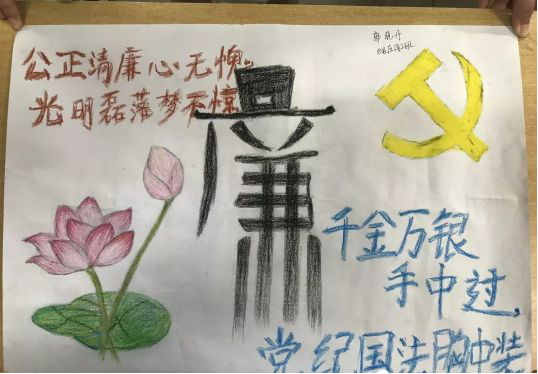 公正清廉心无愧。
光明磊落梦不惊
廉
千金万银
手中过,
党纪国法胸中装